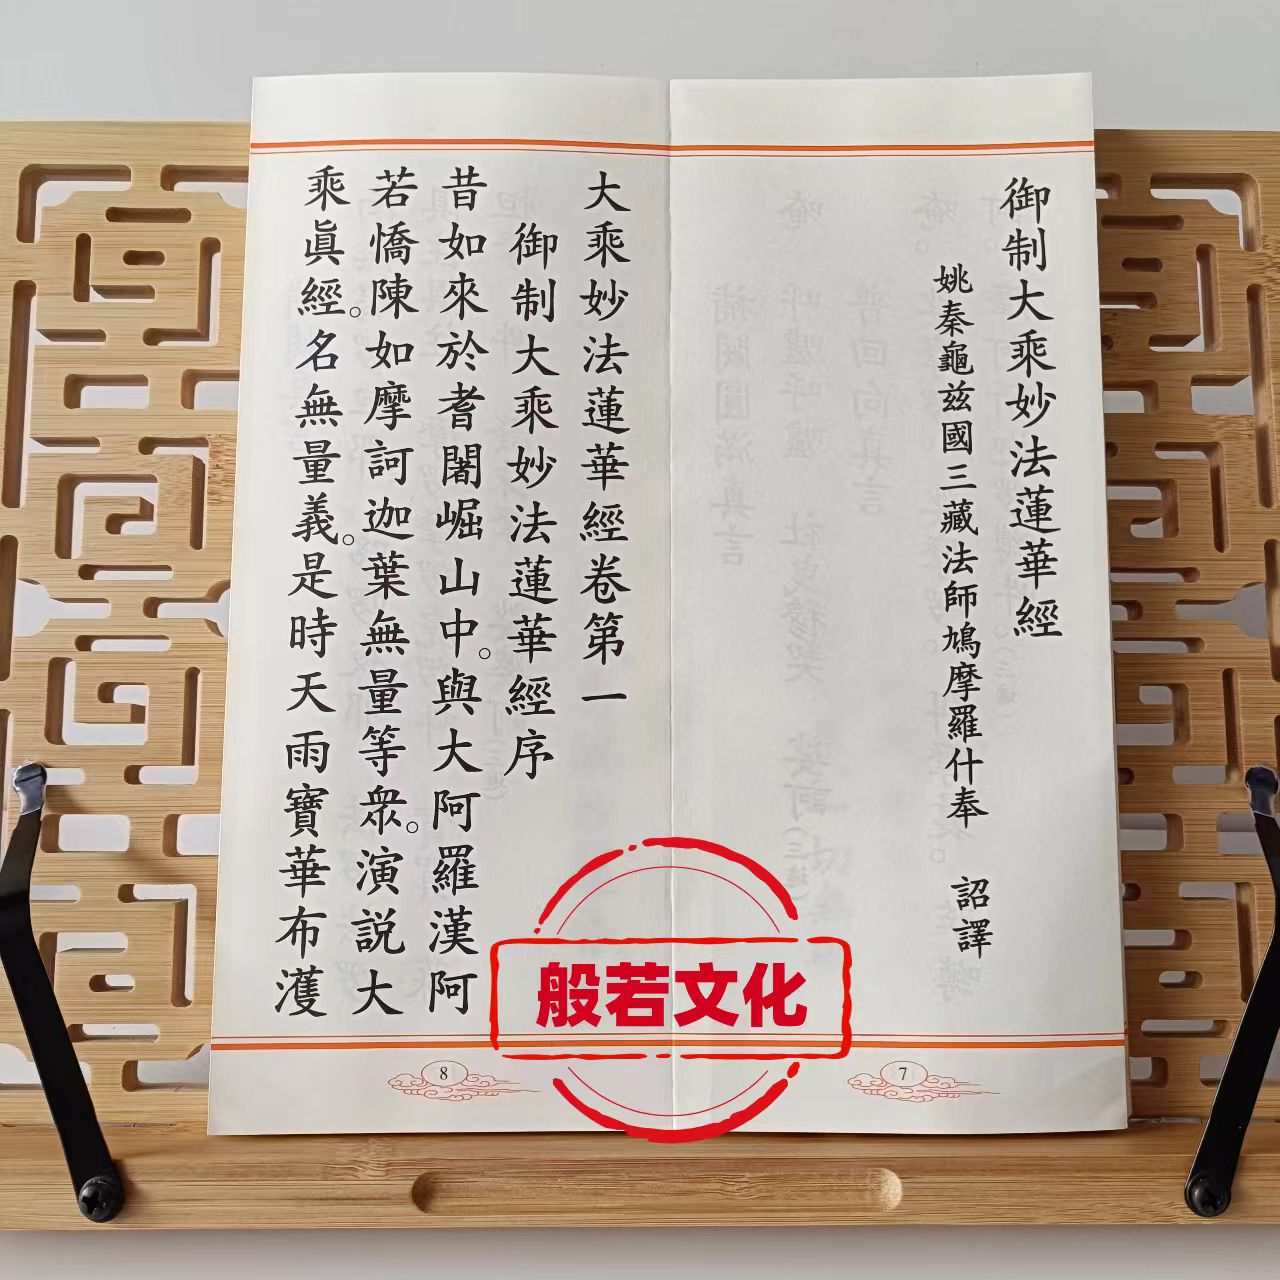 御制大乘妙法蓮華經
姚秦龜玆國三藏法師鳩摩羅什奉 詔譯
7
大乘妙法蓮華經卷第一
御制大乘妙法蓮華經序
昔如來於耆闍崛山中。與大阿羅漢阿
若憍陳如摩訶迦葉無量等衆。演説大
乘眞經。名無量義。是時天雨寶華布濩
8
般若文化